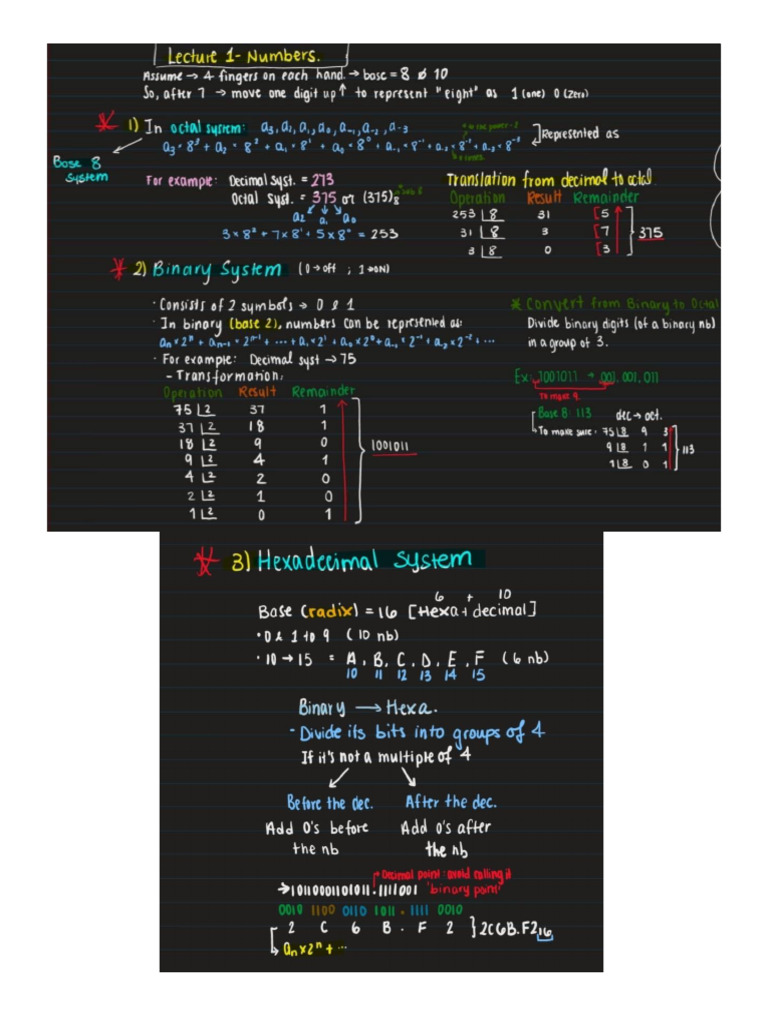 Lecture 1- Numbers.
Assume → 4 fingers on each hand. → base = 8 ≠ 10
So, after 7 → move one digit up ↑ to represent "eight" as 1 (one) 0 (Zero)
* 1) In octal system: a₃, a₂, a₁, a₀, a₋₁, a₋₂, a₋₃
a₃ × 8³ + a₂ × 8² + a₁ × 8¹ + a₀ × 8⁰ + a₋₁ × 8⁻¹ + a₋₂ × 8⁻² + a₋₃ × 8⁻³
] Represented as
Base 8
System
For example: Decimal Syst. = 273
Octal Syst. = 375 or (375)₈
a₂ a₁ a₀
3 × 8² + 7 × 8¹ + 5 × 8⁰ = 253
Translation from decimal to octal.
Operation Result Remainder
253 | 8 31 5
31 | 8 3 7
3 | 8 0 3
375
* 2) Binary System (0 → off ; 1 → ON)
· Consists of 2 symbols → 0 & 1
· In binary (base 2), numbers can be represented as:
aₙ × 2ⁿ + aₙ₋₁ × 2ⁿ⁻¹ + ... + a₁ × 2¹ + a₀ × 2⁰ + a₋₁ × 2⁻¹ + a₋₂ × 2⁻² + ...
· For example: Decimal syst → 75
- Transformation:
Operation Result Remainder
75 | 2 37 1
37 | 2 18 1
18 | 2 9 0
9 | 2 4 1
4 | 2 2 0
2 | 2 1 0
1 | 2 0 1
1001011
* Convert from Binary to Octal
Divide binary digits (of a binary nb)
in a group of 3.
Ex: 1001011 → 001.001.011
To make 9.
Base 8: 113 dec → oct.
To make sure: 75 | 8 9 3
9 | 8 1 1
1 | 8 0 1
113
* 3) Hexadecimal System
6 + 10
Base (radix) = 16 [Hexa + decimal]
· 0 & 1 to 9 (10 nb)
· 10 → 15 = A, B, C, D, E, F (6 nb)
10 11 12 13 14 15
Binary → Hexa.
- Divide its bits into groups of 4
If it's not a multiple of 4
Before the dec. After the dec.
Add 0's before Add 0's after
the nb the nb
Decimal point: avoid calling it
'binary point'
→ 10110001101011.1111001
0010 1100 0110 1011 . 1111 0010
2 C 6 B . F 2 } 2C6B.F2₁₆
aₙ × 2ⁿ + ...